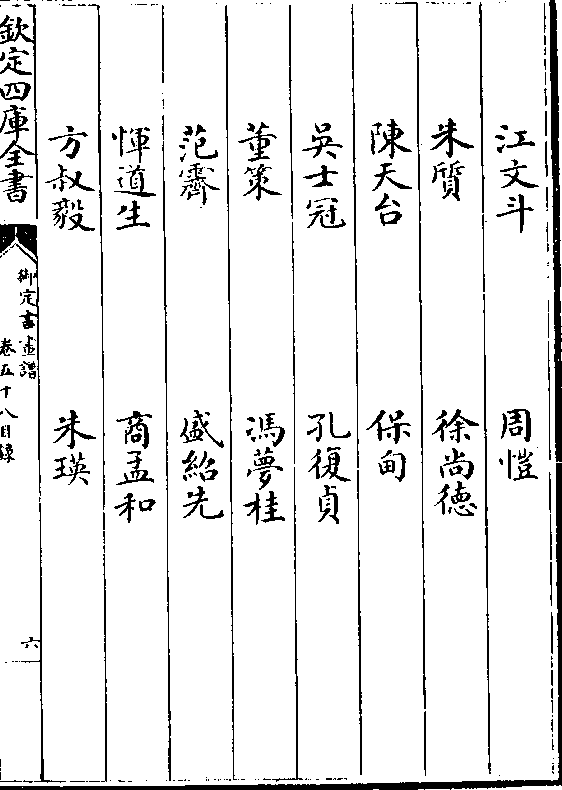 江文斗 周愷
朱質 徐尚德
陳天台 保甸
吳士冠 孔復貞
董策 馮夢桂
范霽 盛紹先
惲道生 商孟和
方叔毅 朱瑛
欽定四庫全書
御定書畫譜
卷五十八目錄
六